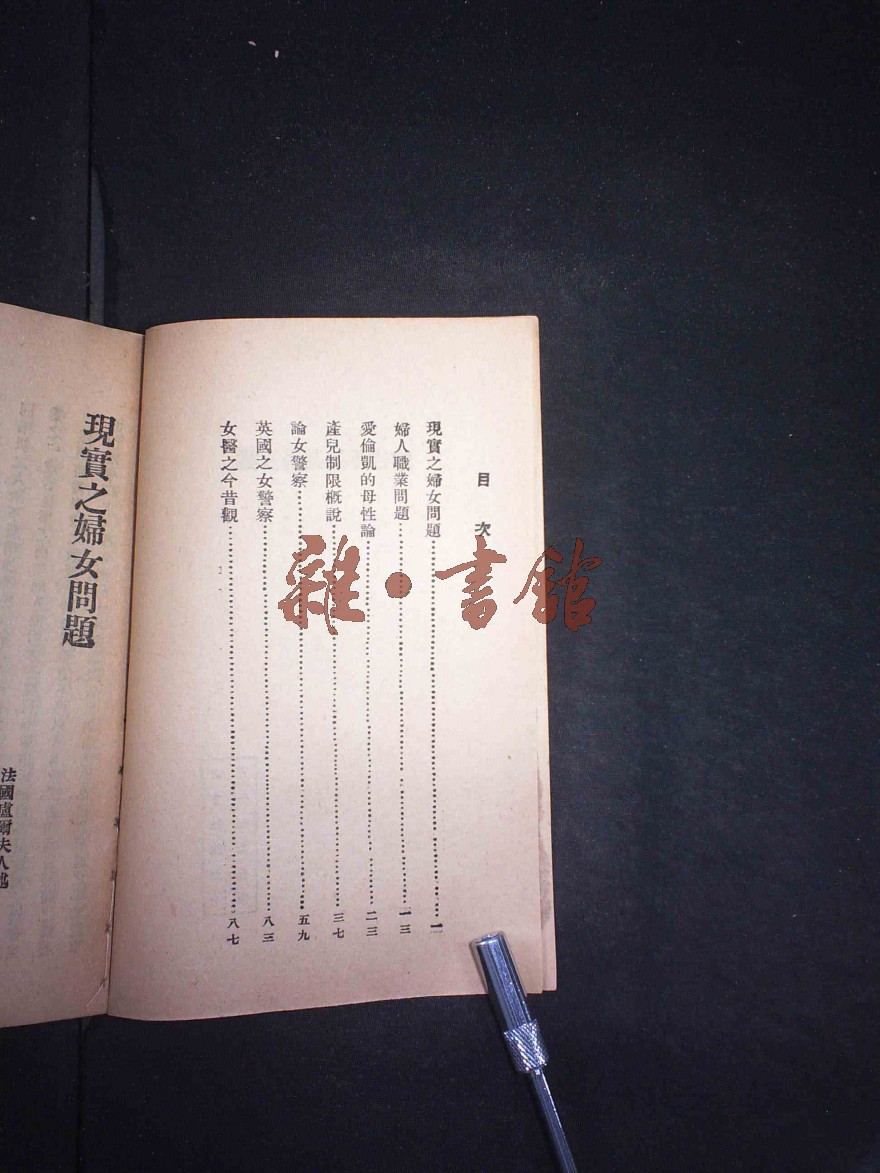 目次
現實之婦女問題 一
婦人職業問題 一三
愛倫凱的母性論 二三
產兒制限概說 三七
論女警察 五九
英國之女警察 八三
女醫之今昔觀 八七
現實之婦女問題
法國盧爾夫人
雜·書館